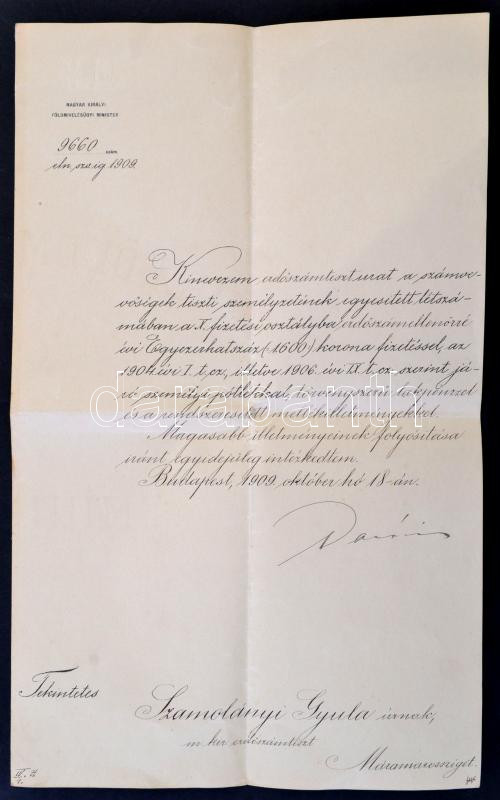 MAGYAR KIRÁLYI
FÖLDMIVELÉSÜGYI MINISTER
9660 szám.
eln. sz. ig. 1909.
Kinevezem erdőszámtiszt urat a számve-
vőségek tiszti személyzetének egyesitett létszá-
mában a X. fizetési osztályba erdőszámellenőrré
évi Egyezerhatszáz (1600) korona fizetéssel, az
1904. évi I. t. cz., illetve 1906. évi IX. t. cz. szerint já-
ró személyi pótlékkal, törvényszerű lakpénzzel
és a rendszeresitett mellékilletményekkel.
Magasabb illetményeinek folyósitása
iránt egyidejüleg intézkedtem.
Budapest, 1909. október hó 18-án.
Darányi
Tekintetes
Szamolányi Gyula úrnak,
m. kir. erdőszámtiszt
Máramarossziget.
darabanth